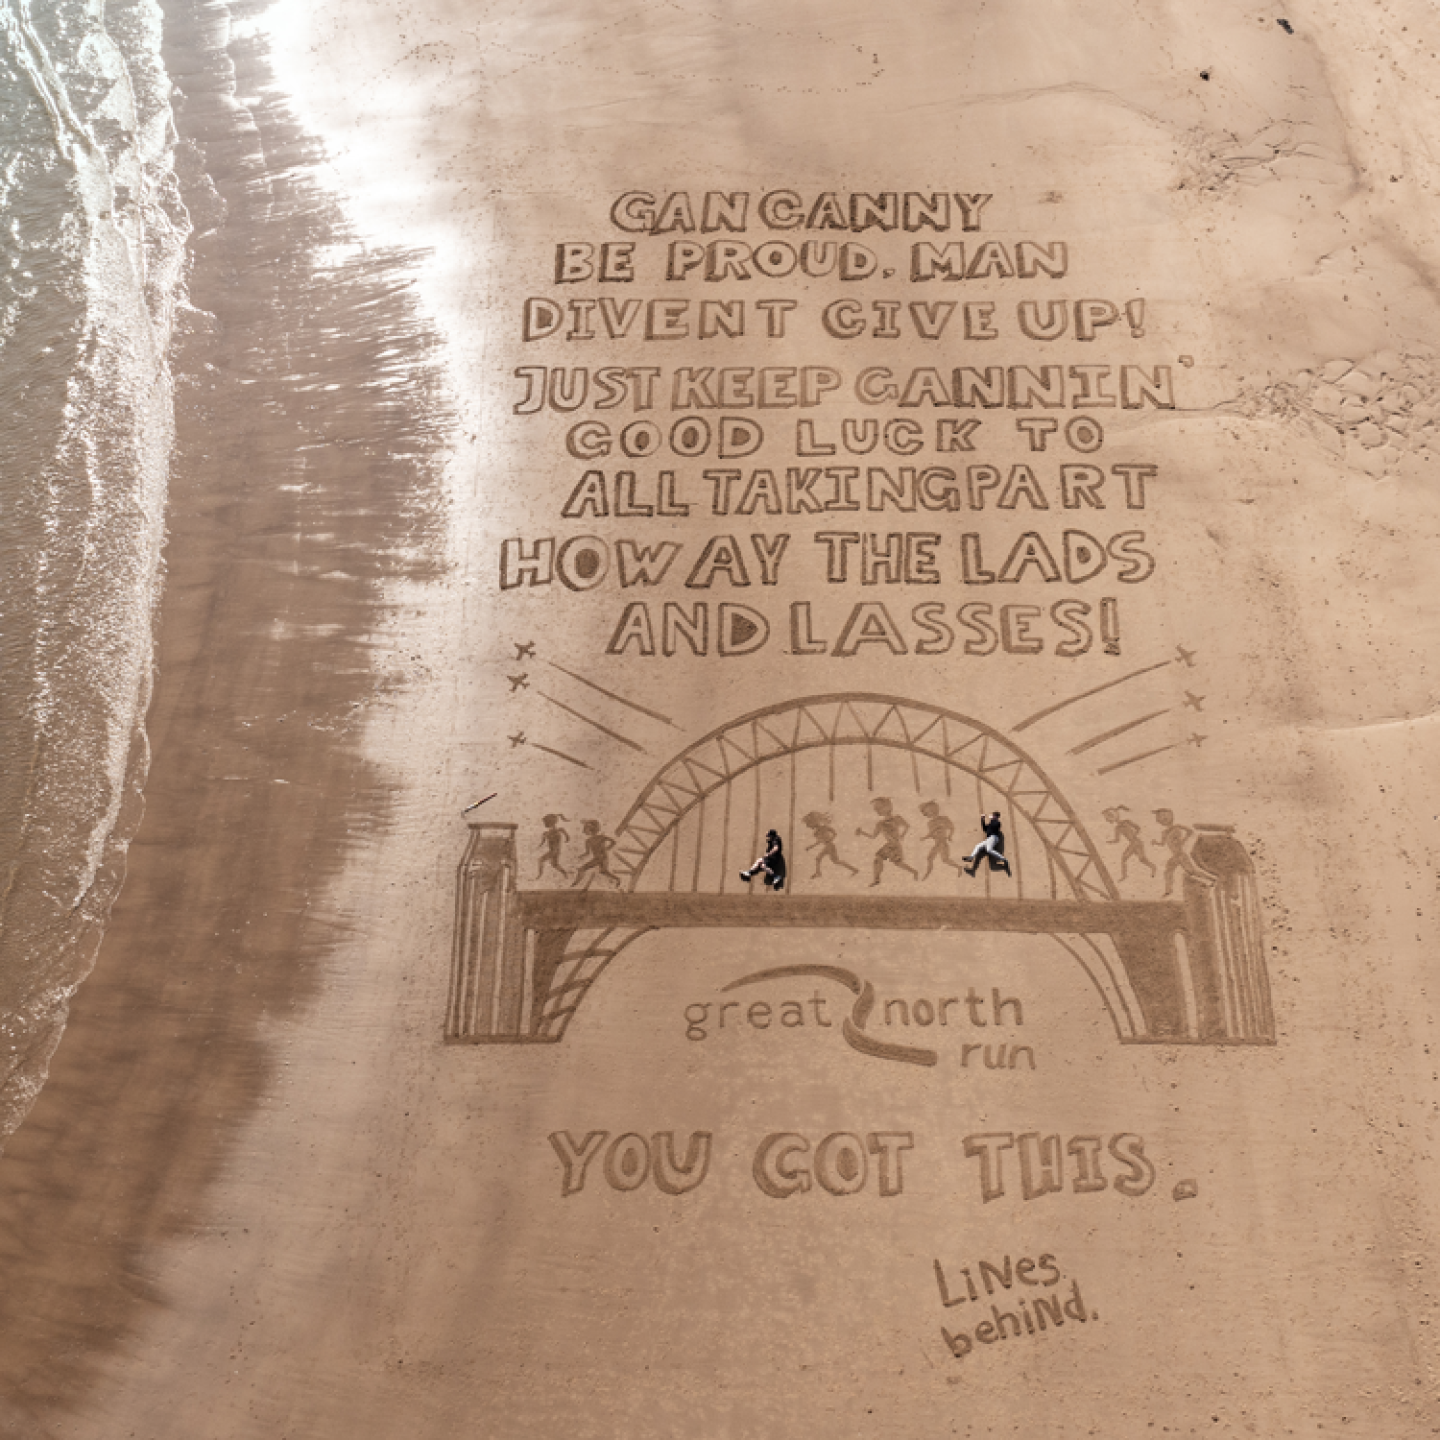 GAN CANNY
BE PROUD. MAN
DIVENT GIVE UP!
JUST KEEP GANNIN'
GOOD LUCK TO
ALL TAKING PART
HOWAY THE LADS
AND LASSES!
great north
run
YOU GOT THIS.
LiNes
behiNd.